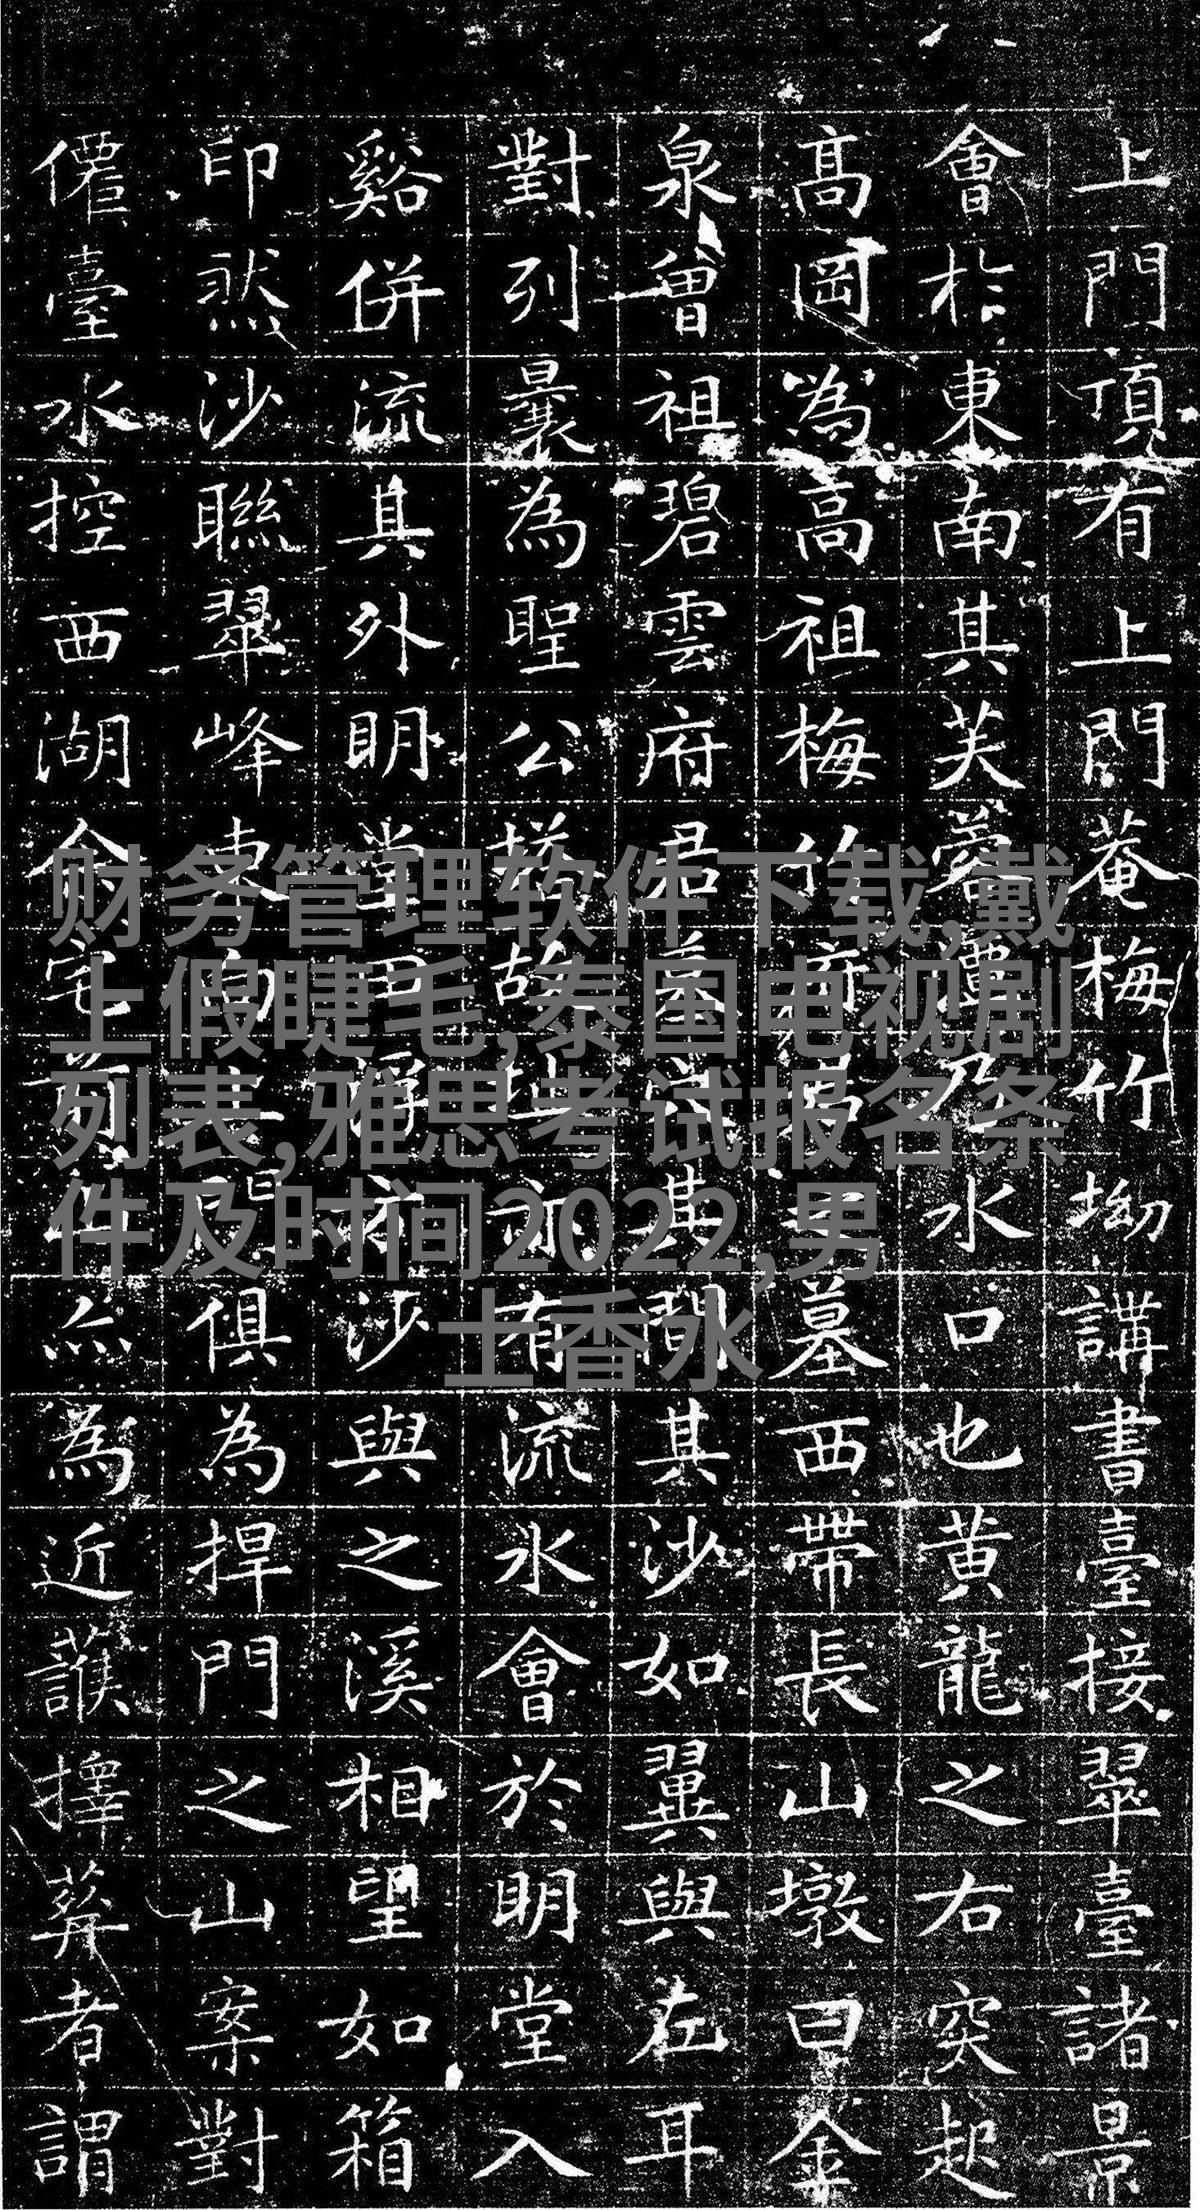 上門頂有上門菴梅竹坳講書臺接翠臺諸景
會扵東南其芙蓉乃水口也黄龍之右突起
髙岡為高祖梅竹府君墓西帶長山墩曰金
泉曾祖碧雲府君墓其間其沙如翼與左耳
對列曩為聖公塔故址亦有流水會於明堂入
谿併流其外明堂沙與之溪相望如箱
印然沙聯翠峰東向俱為捍門之山案對
僊臺水控西湖俞宅前為近擇葬者謂
财务管理软件下载,戴
上假睫毛,泰国电视剧
列表,雅思考试报名条
件及时间2022,男
士香水